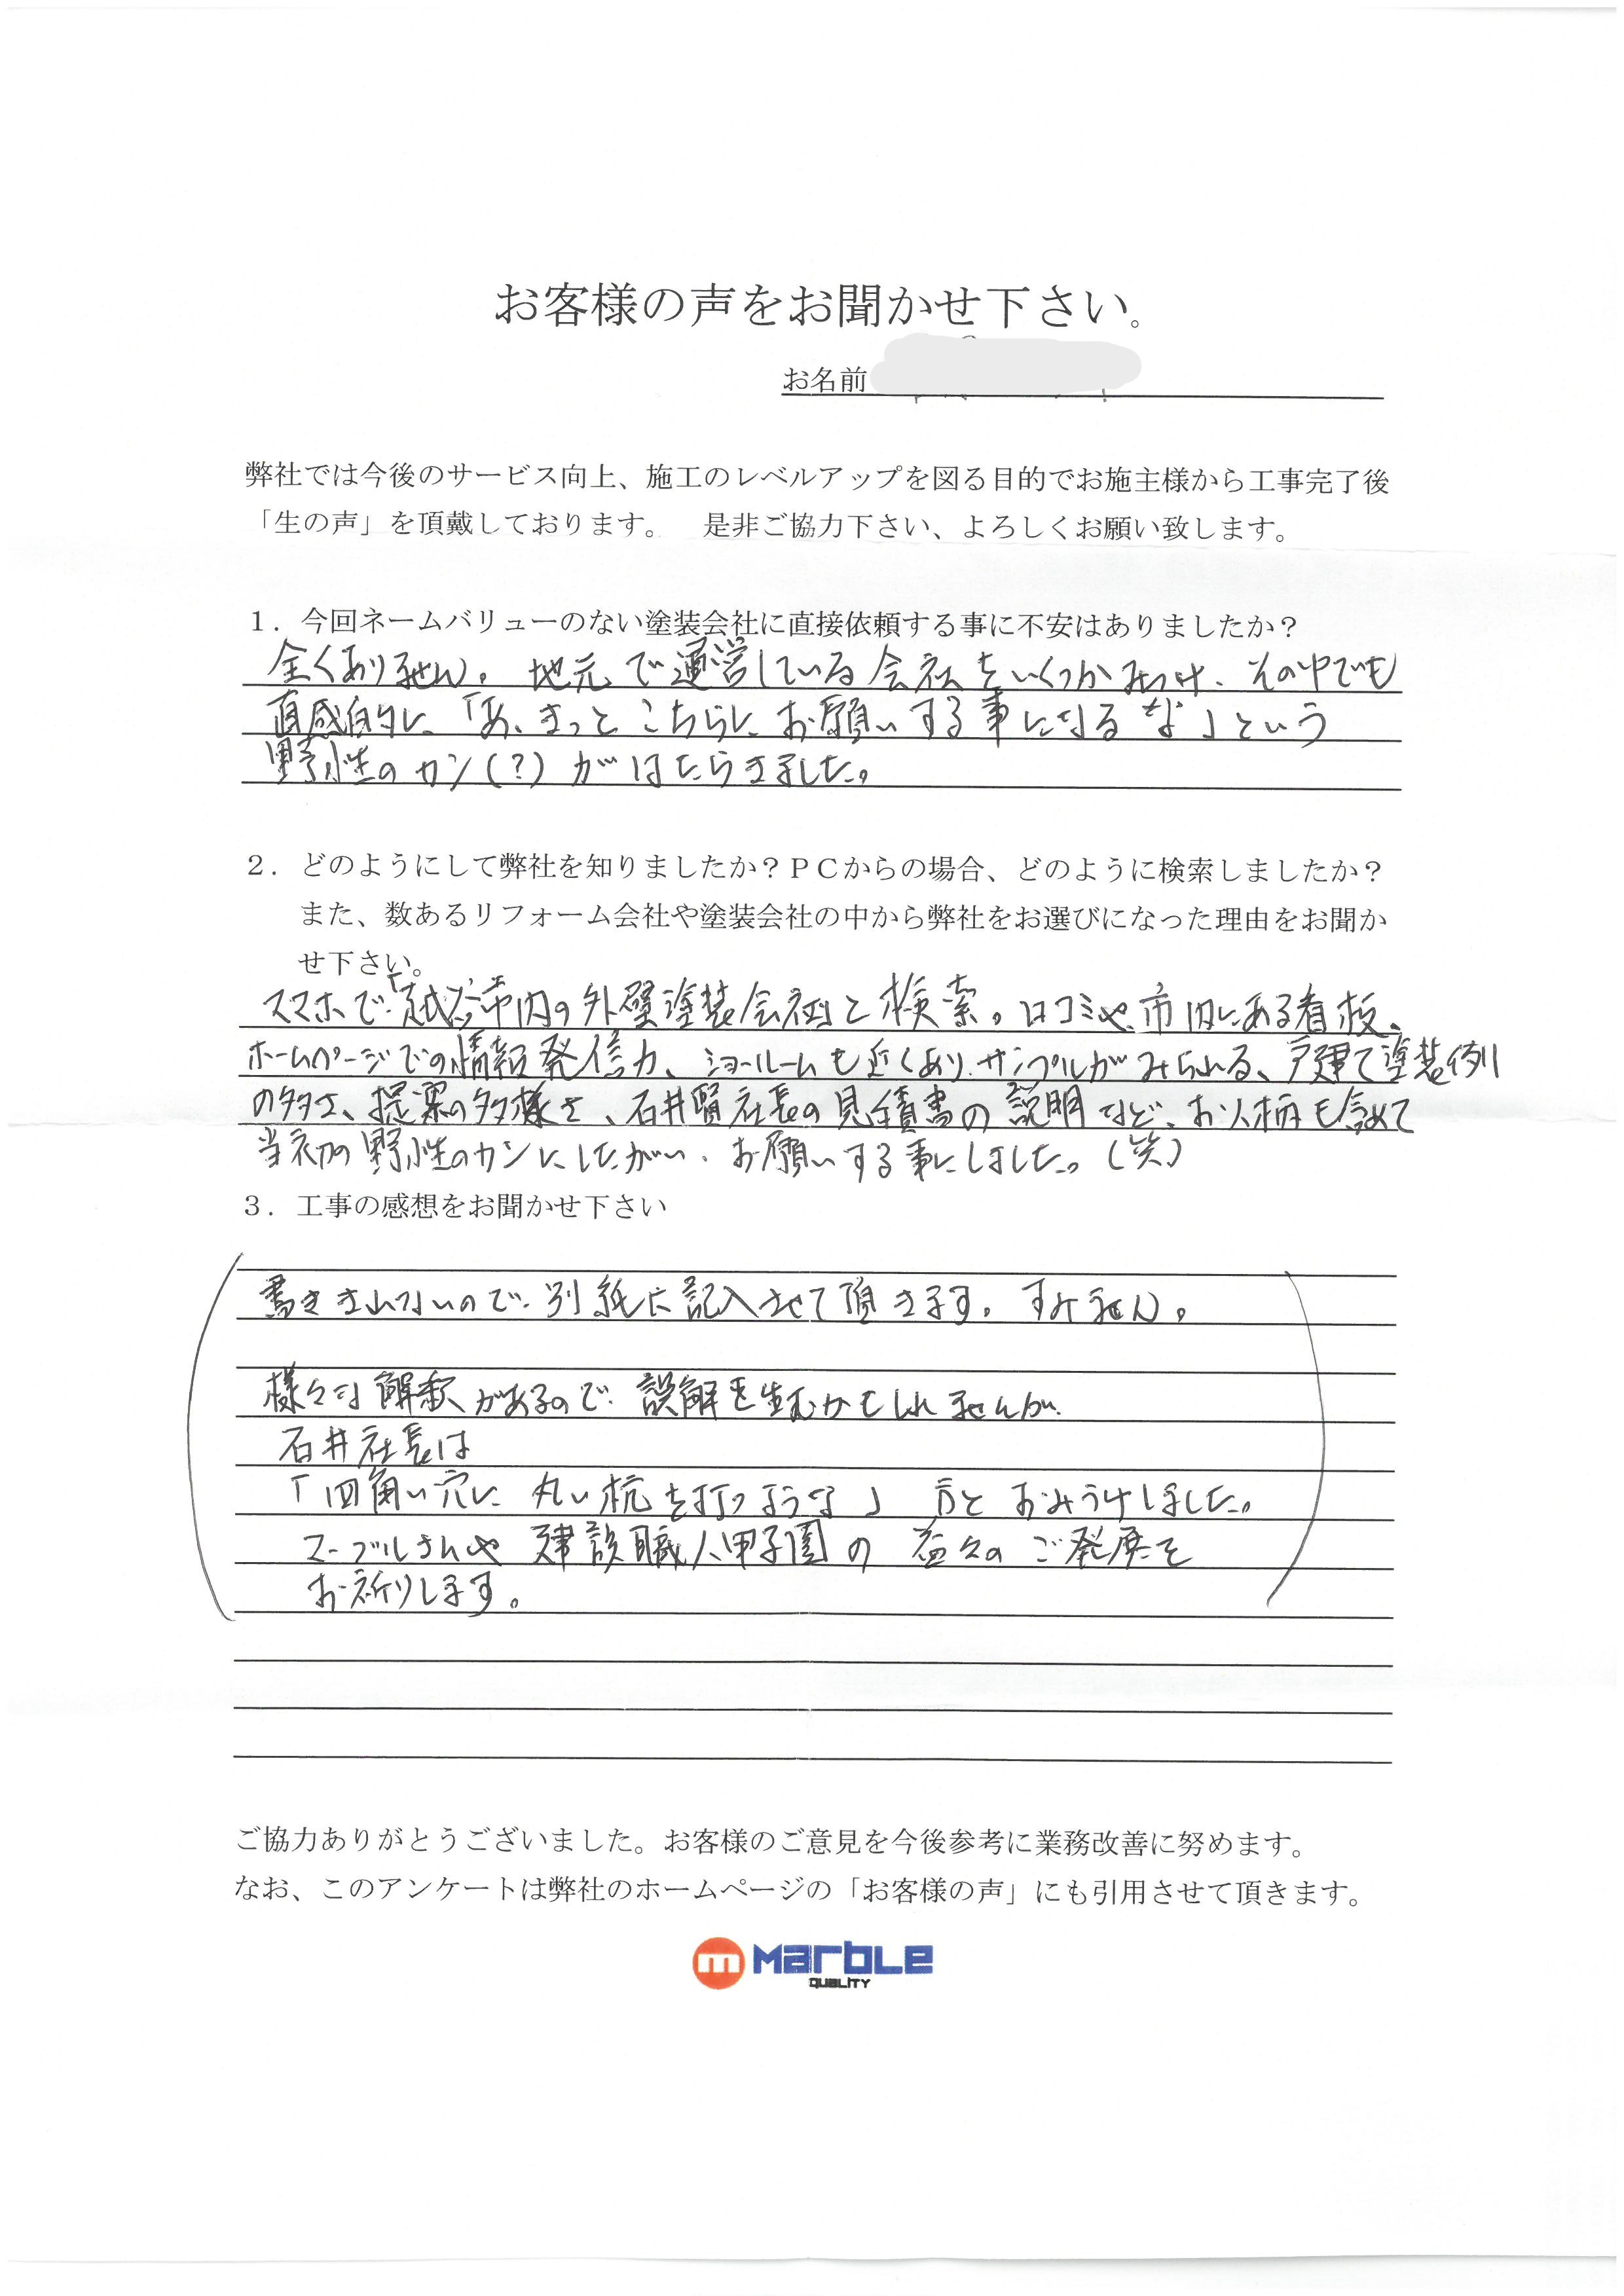 お客様の声をお聞かせ下さい。
お名前
弊社では今後のサービス向上、施工のレベルアップを図る目的でお施主様から工事完了後
「生の声」を頂戴しております。　是非ご協力下さい、よろしくお願い致します。
１．今回ネームバリューのない塗装会社に直接依頼する事に不安はありましたか？
全くありません。地元で運営している会社をいくつかみつけ、その中でも
直感的に「あ、きっとこちらにお願いする事になるな」という
野性のカン(？)がはたらきました。
２．どのようにして弊社を知りましたか？ＰＣからの場合、どのように検索しましたか？
また、数あるリフォーム会社や塗装会社の中から弊社をお選びになった理由をお聞か
せ下さい。
スマホで「越谷市内の外壁塗装会社」と検索。口コミや、市内にある看板、
ホームページでの情報発信力、ショールームも近くあり、サンプルがみられる、戸建て塗装例
の多さ、提案の多様さ、石井賢社長の見積書の説明など、お人柄も含めて
当初の野性のカンにしたがい、お願いする事にしました。(笑)
３．工事の感想をお聞かせ下さい
書ききれないので、別紙に記入させて頂きます。すみません。
様々な解釈があるので、誤解を生むかもしれませんが、
石井社長は
「四角い穴に丸い杭を打つような」方とおみうけしました。
マーブルさんや建設職人甲子園の益々のご発展を
お祈りします。
ご協力ありがとうございました。お客様のご意見を今後参考に業務改善に努めます。
なお、このアンケートは弊社のホームページの「お客様の声」にも引用させて頂きます。
m Marble
QUALITY